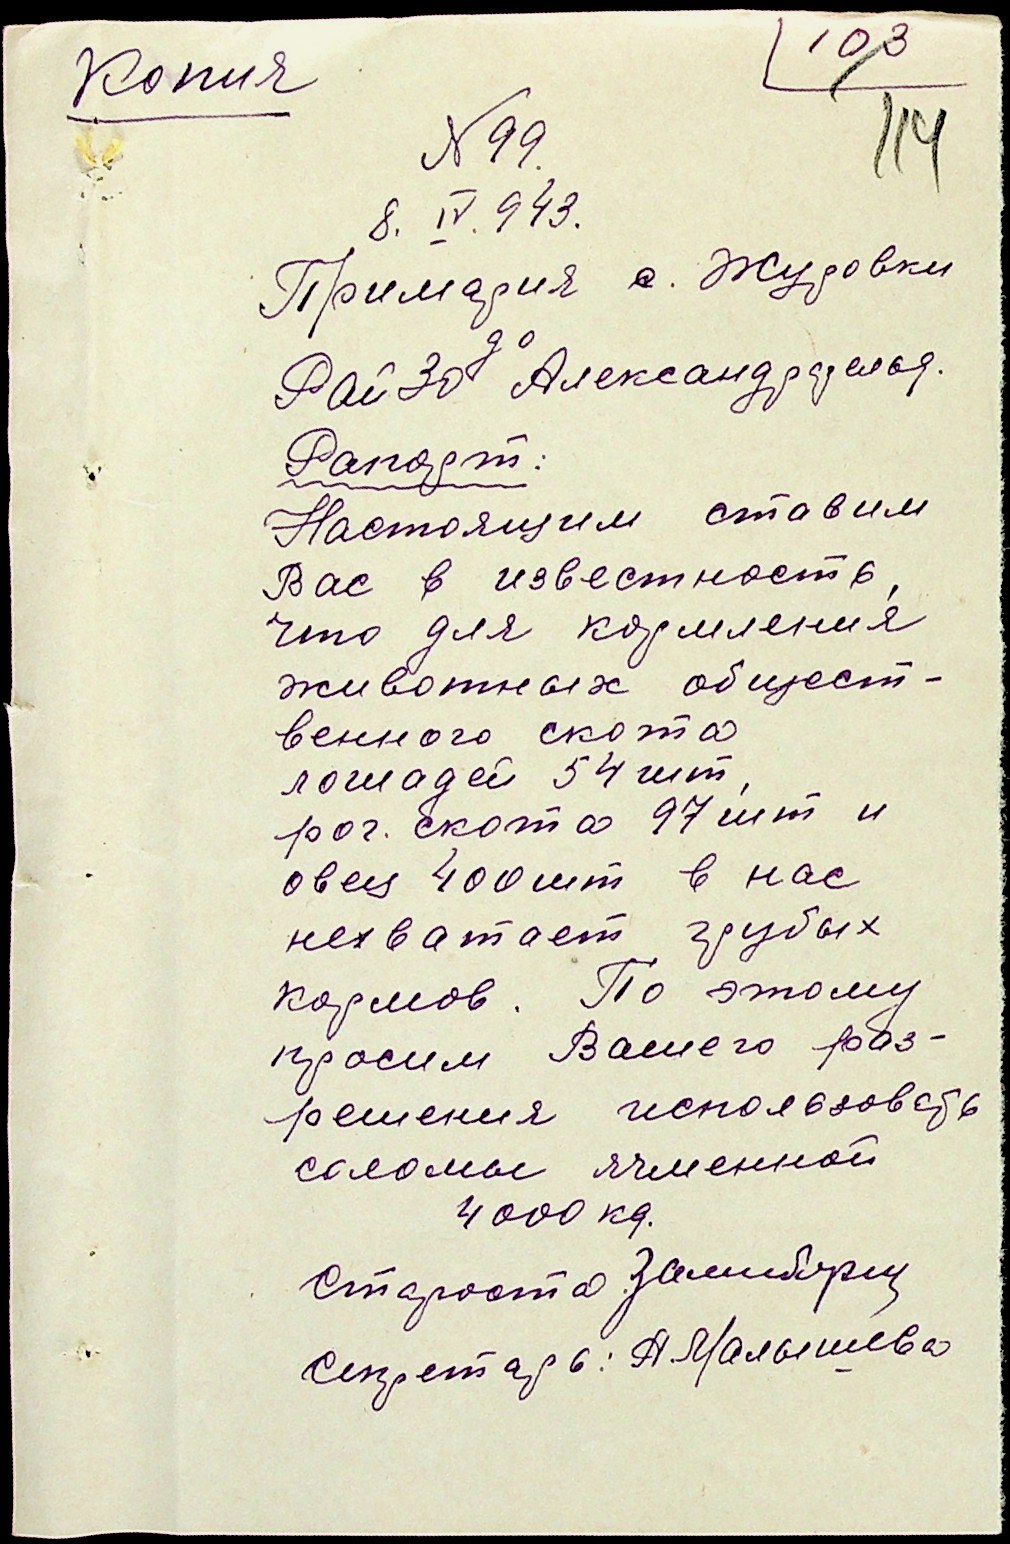 Копия
103
114
№ 99.
8. IV. 943.
Примария с. Журовки
до
РайЗо Александрфельд.
Рапорт:
Настоящим ставим
Вас в известность,
что для кормления
животных общест-
венного скота
лошадей 54 шт,
рог. скота 97 шт и
овец 400 шт в нас
нехватает грубых
кормов. По этому
просим Вашего раз-
решения использовать
соломы ячменной
4000 кг.
Староста
Секретарь: А Малышева